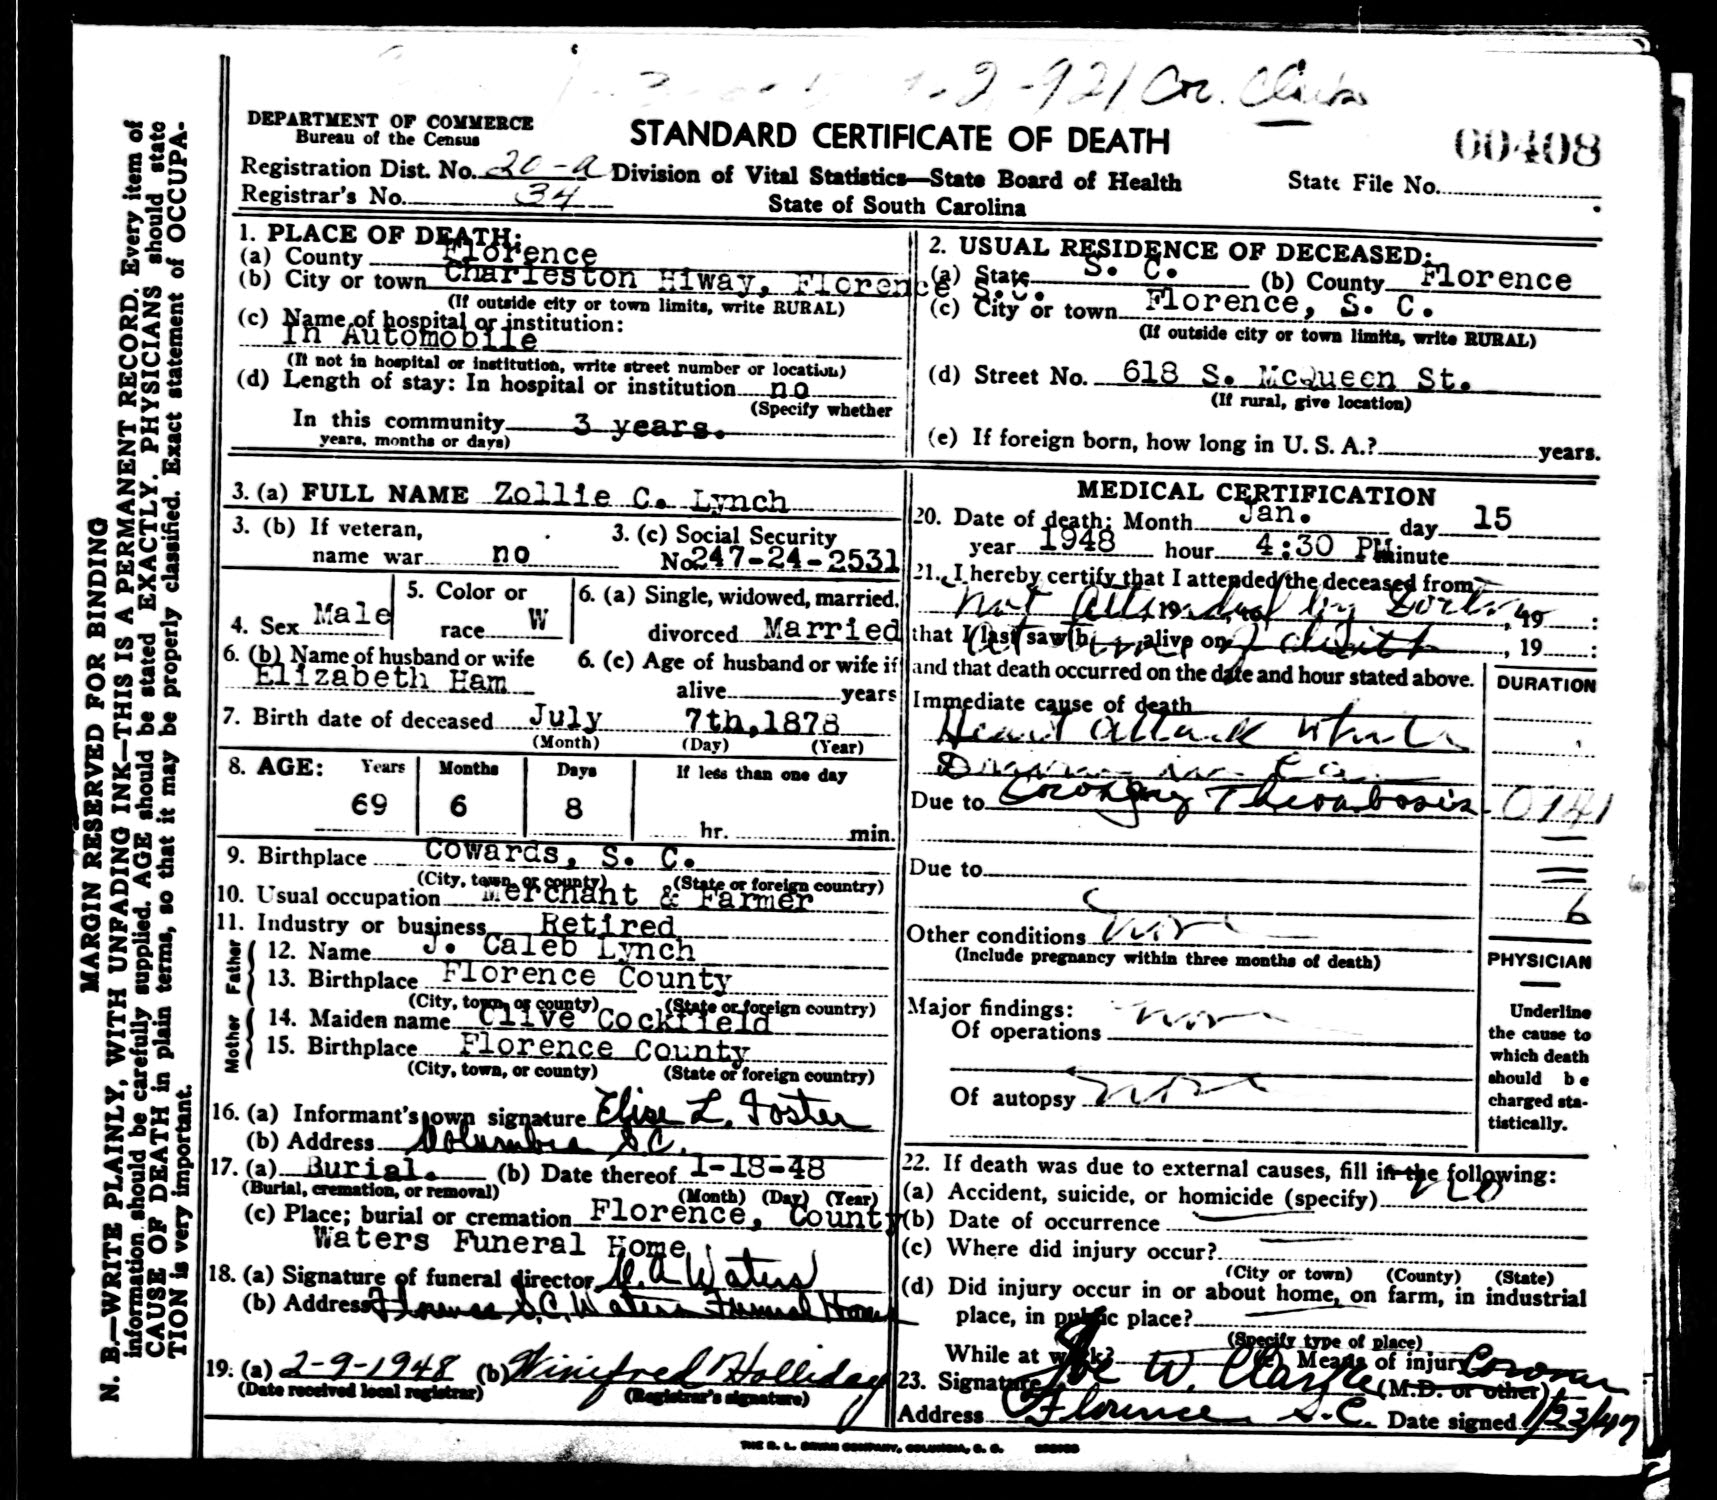 -2-921 Cor.
DEPARTMENT OF COMMERCE
Bureau of the Census
STANDARD CERTIFICATE OF DEATH
00408
Registration Dist. No. 20-a Division of Vital Statistics—State Board of Health
State File No.
Registrar's No. 34
State of South Carolina
1. PLACE OF DEATH:
(a) County Florence
(b) City or town Charleston Hiway, Florence S.C.
(If outside city or town limits, write RURAL)
(c) Name of hospital or institution:
In Automobile
(If not in hospital or institution, write street number or location)
(d) Length of stay: In hospital or institution no
(Specify whether
In this community 3 years.
years, months or days)
2. USUAL RESIDENCE OF DECEASED:
(a) State S. C. (b) County Florence
(c) City or town Florence, S. C.
(If outside city or town limits, write RURAL)
(d) Street No. 618 S. McQueen St.
(If rural, give location)
(e) If foreign born, how long in U. S. A.? years.
3. (a) FULL NAME Zollie C. Lynch
3. (b) If veteran,
name war no
3. (c) Social Security
No. 247-24-2531
4. Sex Male
5. Color or
race W
6. (a) Single, widowed, married,
divorced Married
6. (b) Name of husband or wife
Elizabeth Ham
6. (c) Age of husband or wife if
alive years
7. Birth date of deceased July 7th, 1878
(Month) (Day) (Year)
8. AGE: Years Months Days If less than one day
69 6 8 hr. min.
9. Birthplace Cowards, S. C.
(City, town, or county) (State or foreign country)
10. Usual occupation Merchant & Farmer
11. Industry or business Retired
Father
12. Name J. Caleb Lynch
13. Birthplace Florence County
(City, town, or county) (State or foreign country)
Mother
14. Maiden name Clive Cockfield
15. Birthplace Florence County
(City, town, or county) (State or foreign country)
16. (a) Informant's own signature Elise L. Foster
(b) Address Columbia S.C.
17. (a) Burial. (b) Date thereof 1-18-48
(Burial, cremation, or removal) (Month) (Day) (Year)
(c) Place; burial or cremation Florence, County
Waters Funeral Home
18. (a) Signature of funeral director Waters
(b) Address Florence S.C. Waters Funeral Home
19. (a) 2-9-1948 (b) Winifred Holliday
(Date received local registrar) (Registrar's signature)
MEDICAL CERTIFICATION
20. Date of death: Month Jan. day 15
year 1948 hour 4:30 PM minute
21. I hereby certify that I attended the deceased from
not attended by Doctor, 19 :
that I last saw h alive on , 19 :
At time of death
and that death occurred on the date and hour stated above.
DURATION
Immediate cause of death
Heart attack while
Due to Coronary Thrombosis
Due to
6
Other conditions none
(Include pregnancy within three months of death)
PHYSICIAN
Underline
the cause to
which death
should be
charged sta-
tistically.
Major findings:
Of operations none
Of autopsy none
22. If death was due to external causes, fill in the following:
(a) Accident, suicide, or homicide (specify) no
(b) Date of occurrence
(c) Where did injury occur?
(City or town) (County) (State)
(d) Did injury occur in or about home, on farm, in industrial
place, in public place?
(Specify type of place)
While at work? (e) Means of injury
23. Signature Joe W. Coroner
(M.D. or other)
Address Florence S.C. Date signed
MARGIN RESERVED FOR BINDING
N. B.—WRITE PLAINLY, WITH UNFADING INK—THIS IS A PERMANENT RECORD. Every item of
information should be carefully supplied. AGE should be stated EXACTLY. PHYSICIANS should state
CAUSE OF DEATH in plain terms, so that it may be properly classified. Exact statement of OCCUPA-
TION is very important.